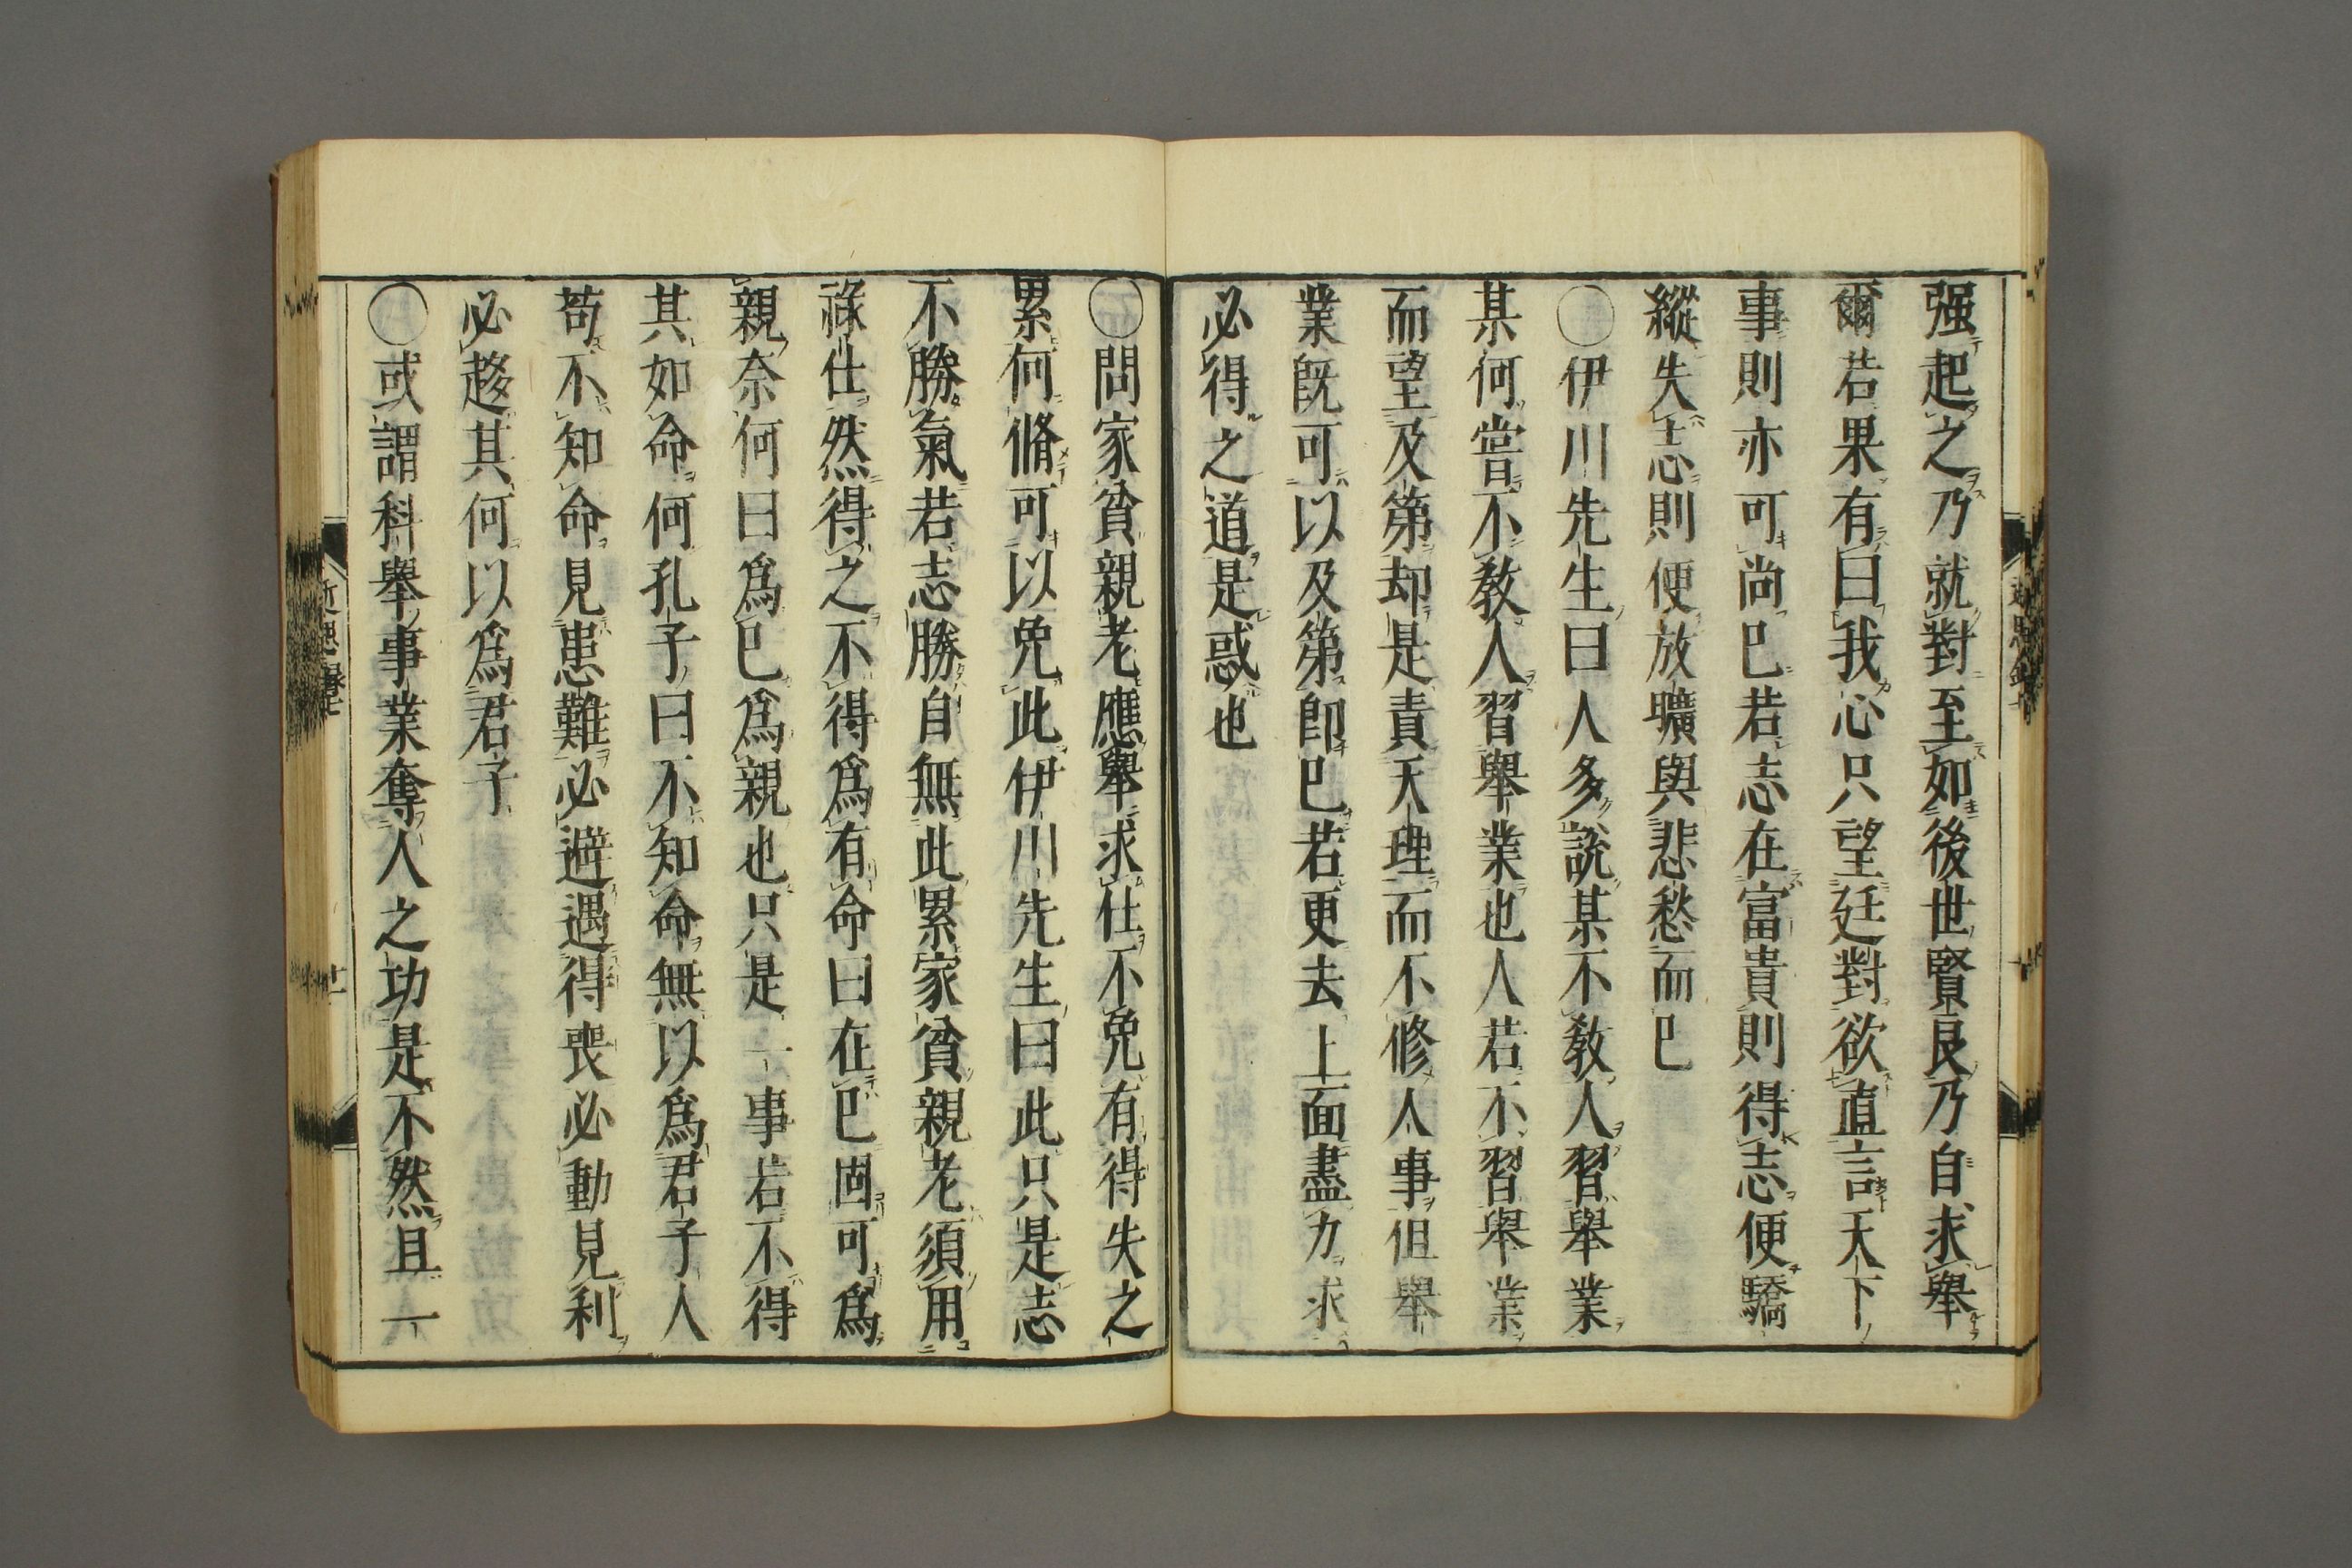 强起之乃就對至如後世賢良乃自求舉
爾若果有曰我心只望廷對欲直言天下
事則亦可尚已若志在富貴則得志便驕
縱失志則便放曠與悲愁而已
○伊川先生曰人多說某不教人習舉業
某何嘗不教人習舉業也人若不習舉業
而望及第却是責天理而不修人事但舉
業既可以及第即已若更去上面盡力求
必得之道是惑也
○問家貧親老應舉求仕不免有得失之
累何脩可以免此伊川先生曰此只是志
不勝氣若志勝自無此累家貧親老須用
祿仕然得之不得爲有命曰在己固可爲
親奈何曰爲己爲親也只是一事若不得
其如命何孔子曰不知命無以爲君子人
苟不知命見患難必避遇得喪必動見利
必趍其何以爲君子
○或謂科舉事業奪人之功是不然且一